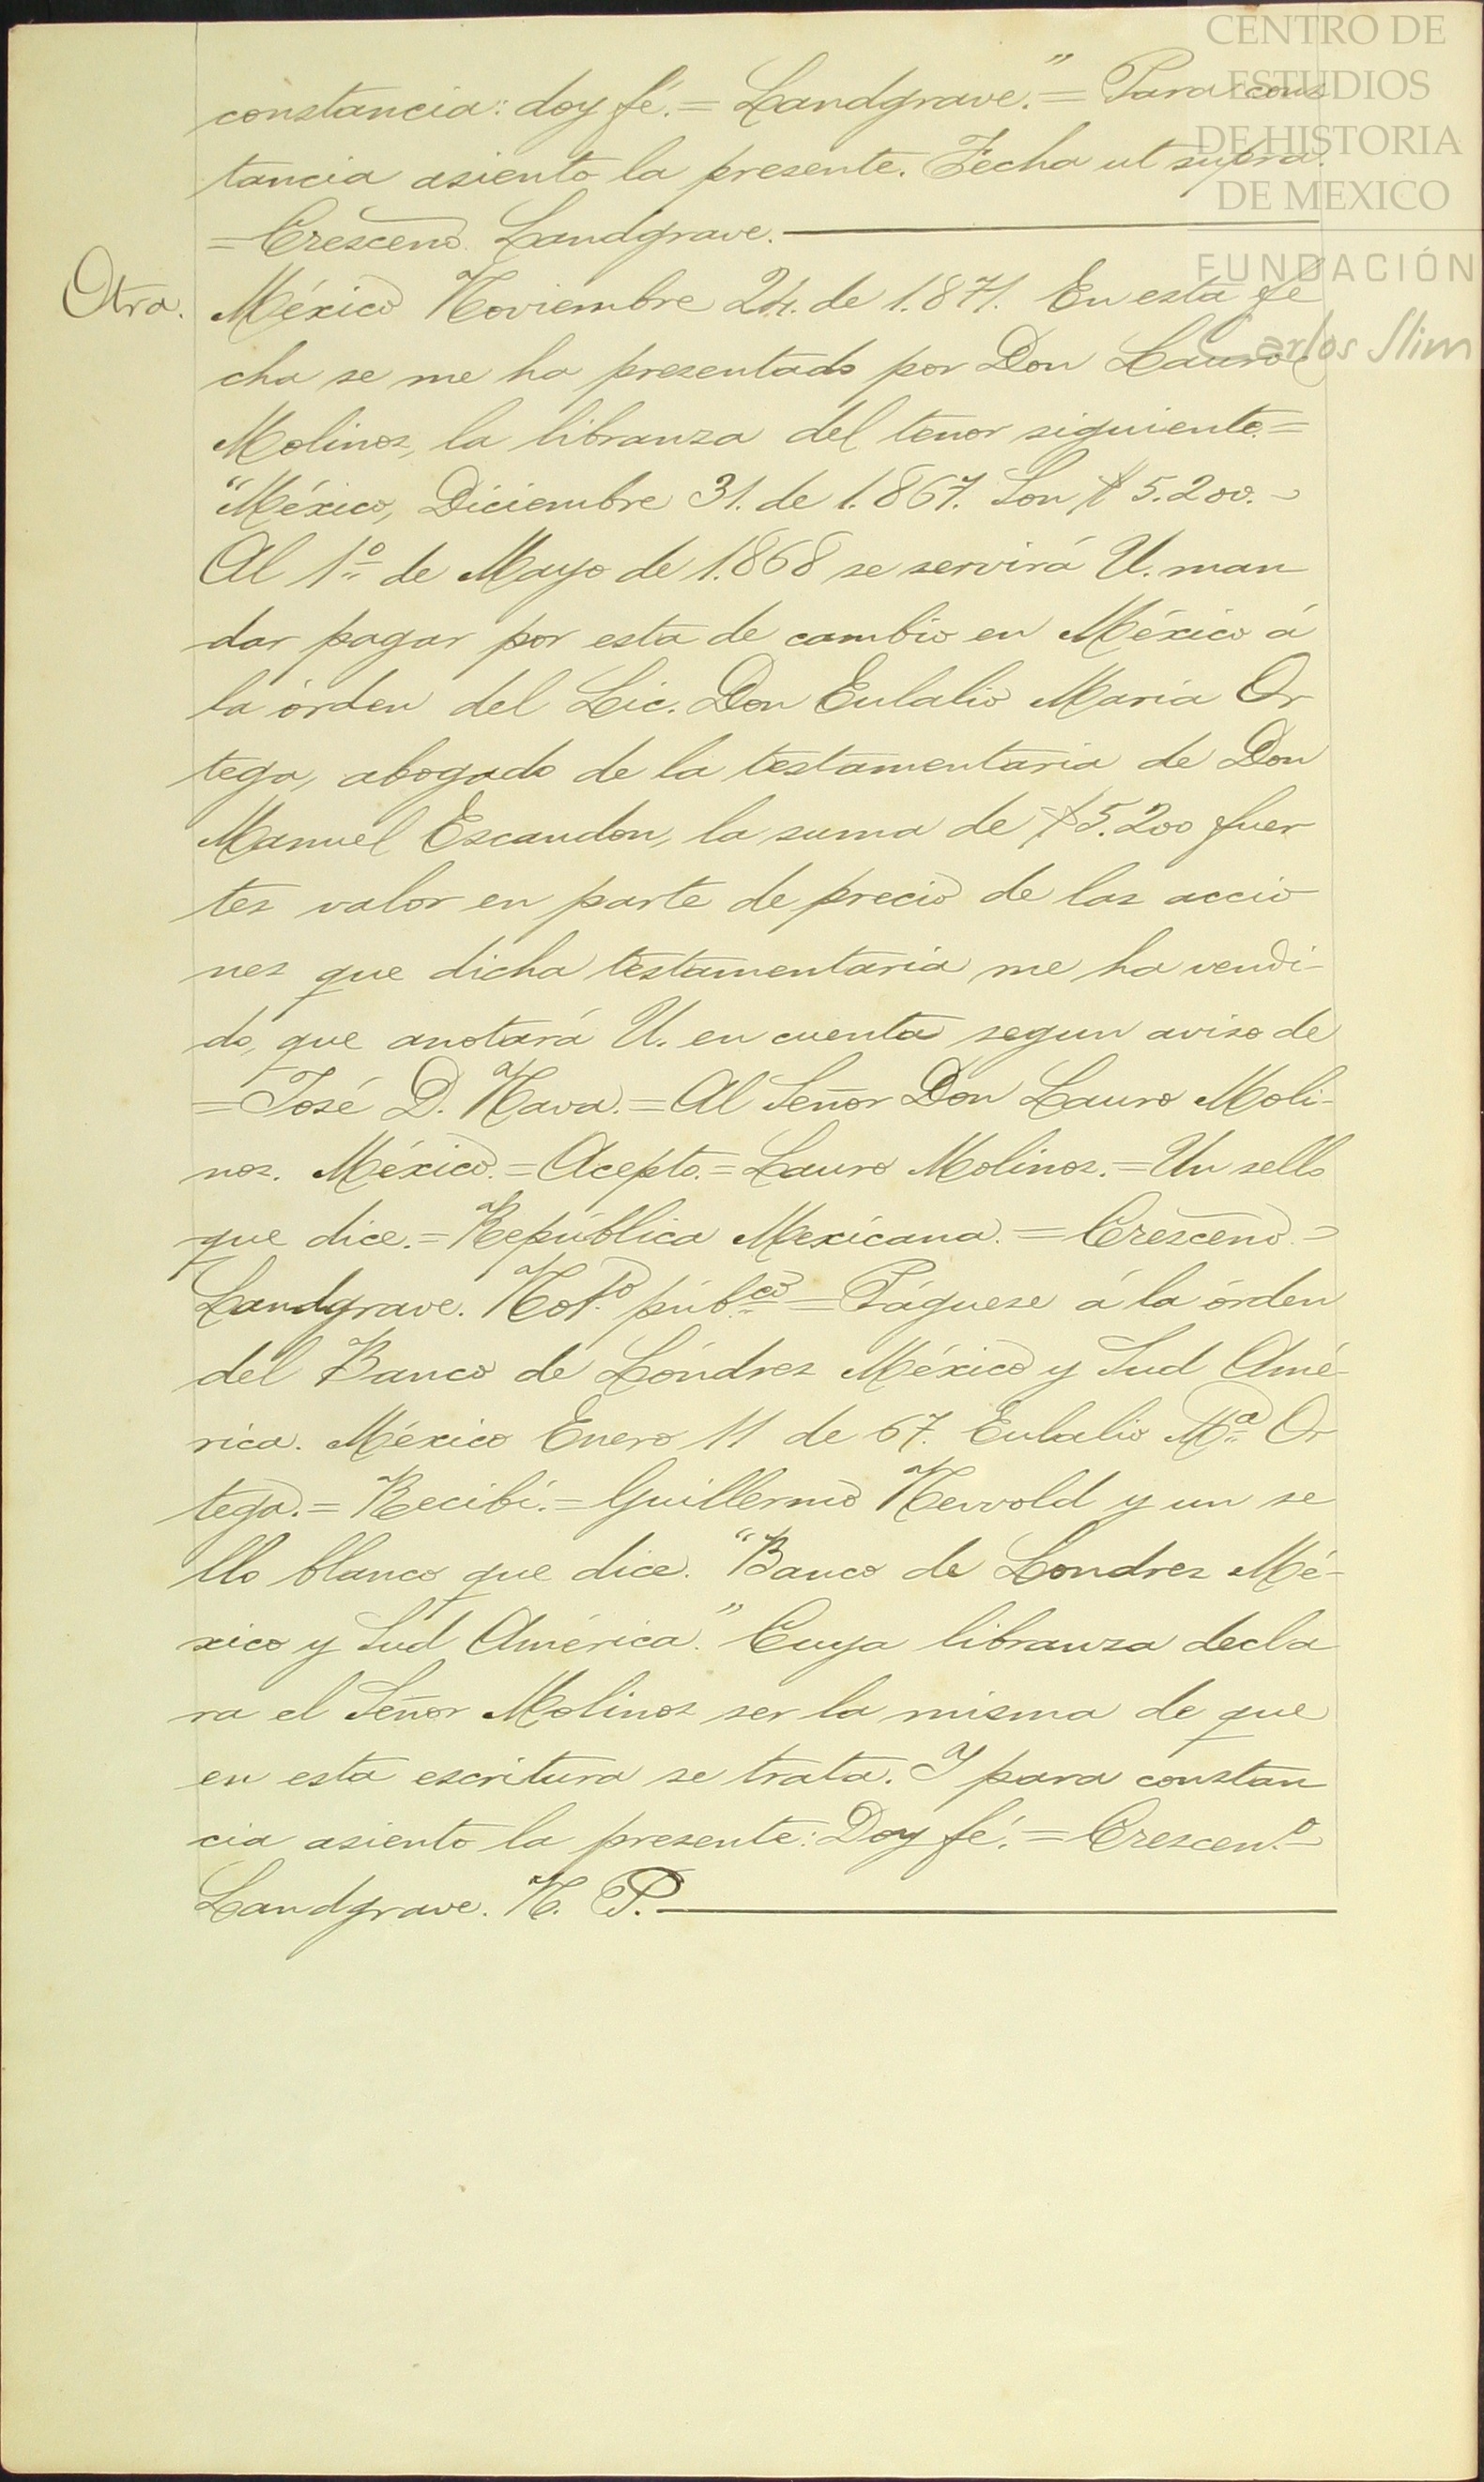 CENTRO DE
ESTUDIOS
DE HISTORIA
DE MEXICO
FUNDACIÓN
Carlos Slim
constancia: doy fé. = Landgrave." = Para cons
tancia asiento la presente. Fecha ut supra.
= Crescenº. Landgrave.
Otra.
México Noviembre 24. de 1.871. En esta fe
cha se me ha presentado por Don Lauro
Molinos, la libranza del tenor siguiente. =
"México, Diciembre 31. de 1.867. Son $ 5.200. -
Al 1º de Mayo de 1.868 se servirá U. man
dar pagar por esta de cambio en México á
la órden del Lic. Don Eulalio Maria Or
tega, abogado de la testamentaria de Don
Manuel Escandon, la suma de $ 5.200 fuer
tes valor en parte de precio de las accio
nes que dicha testamentaria me ha vendi-
do, que anotará U. en cuenta segun aviso de
= José D. Nava. = Al Señor Don Lauro Moli-
nos. México. = Acepto. = Lauro Molinos. = Un sello
que dice. = República Mexicana. = Crescenº. =
Landgrave. Notº. púbcº. = Páguese á la órden
del Banco de Lóndres México y Sud Amé-
rica. México Enero 11 de 67. Eulalio Mª Or
tega. = Recibí. = Guillermo Newold y un se
llo blanco que dice. "Banco de Londres Mé-
xico y Sud América." Cuya libranza decla
ra el Señor Molinos ser la misma de que
en esta escritura se trata. Y para constan
cia asiento la presente: Doy fé. = Crescen.º
Landgrave. N. P.